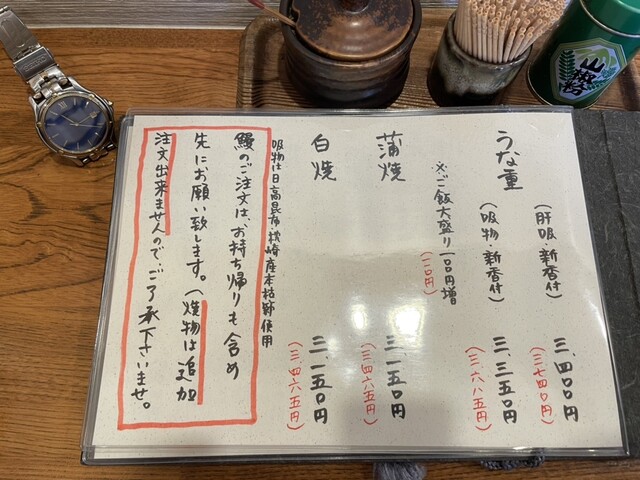 うな重
(肝吸・新香付) 三、四〇〇円
(三、七四〇円)
(吸物・新香付) 三、三五〇円
(三、六八五円)
※ご飯大盛り一〇〇円増
(一一〇円)
蒲焼 三、一五〇円
(三、四六五円)
白焼 三、一五〇円
(三、四六五円)
吸物は日高昆布・枕崎産本枯節使用
鰻のご注文は、お持ち帰りも含め
先にお願い致します。(焼物は追加
注文出来ませんので、ご了承下さいませ。
山椒